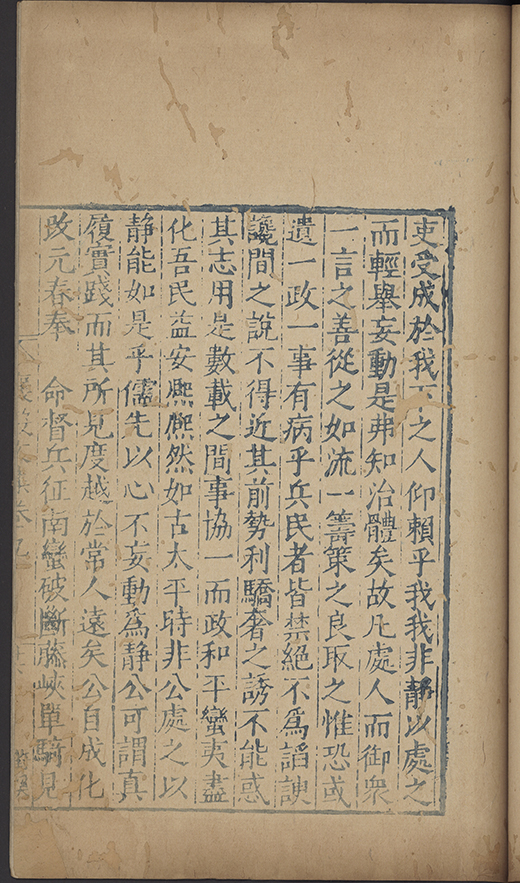 吏受成於我下之人仰賴乎我我非靜以處之
而輕舉妄動是弗知治體矣故凡處人而御衆
一言之善從之如流一籌策之良取之惟恐或
遺一政一事有病乎兵民者皆禁絕不爲諂諛
讒間之說不得近其前勢利驕奢之誘不能惑
其志用是數載之間事協一而政和平蠻夷盡
化吾民益安熈熈然如古太平時非公處之以
静能如是乎儒先以心不妄動爲静公可謂真
履實踐而其所見度越於常人遠矣公自成化
改元春奉　命督兵征南蠻破斷藤峽單騎見
集卷九